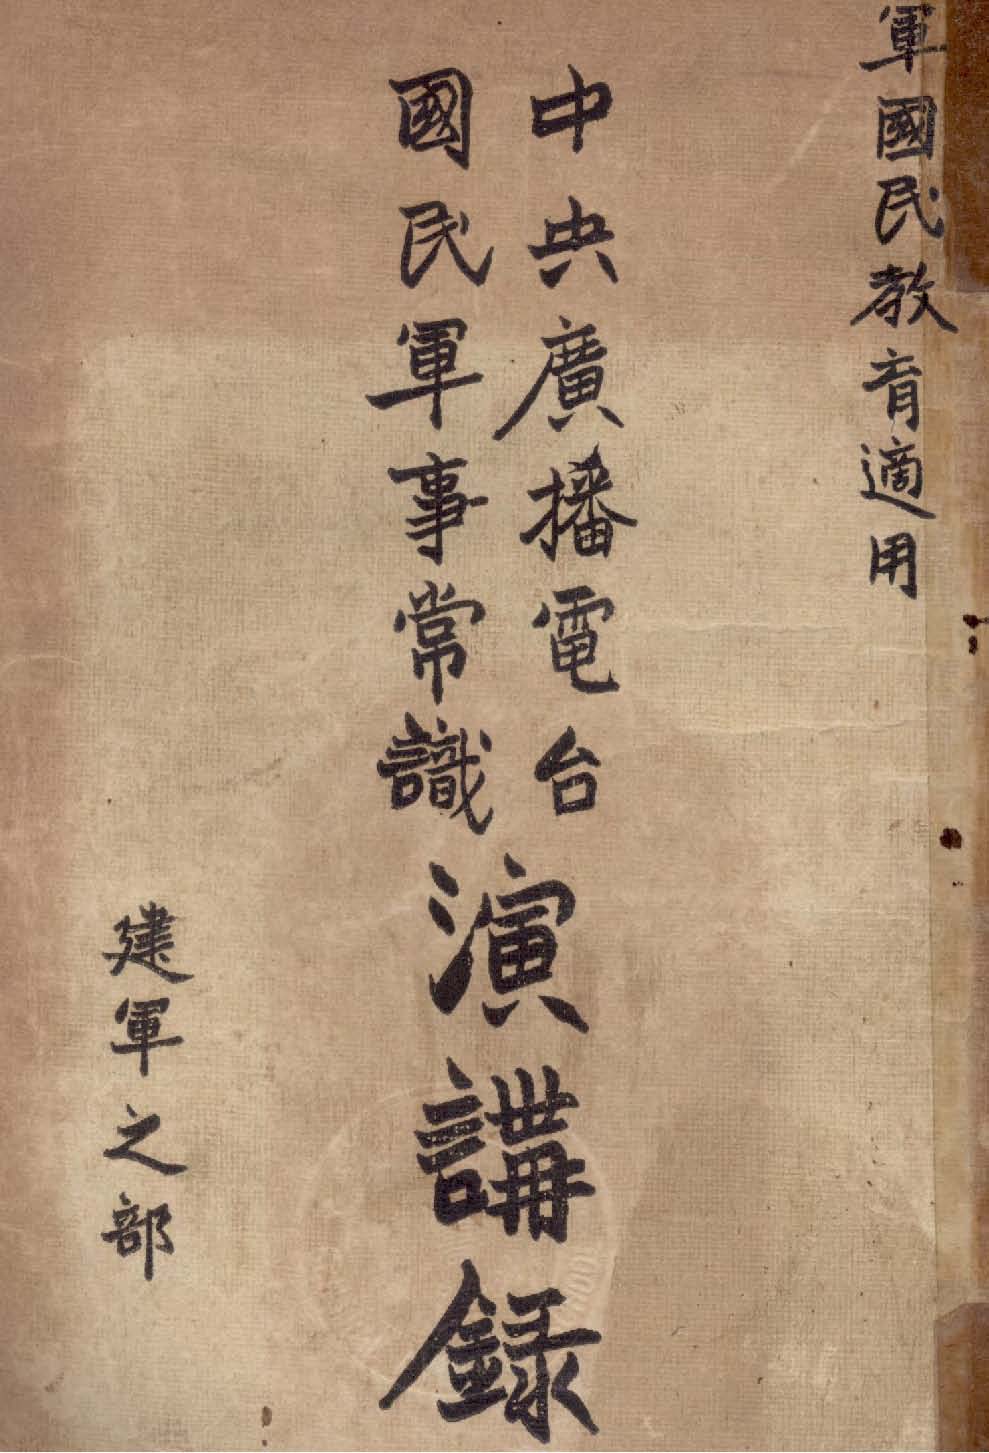 軍國民教育適用
中央廣播電台
國民軍事常識
演講錄
建軍之部